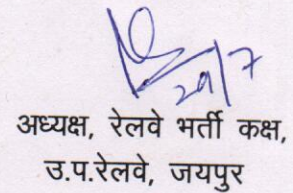 20/7
अध्यक्ष, रेलवे भर्ती कक्ष,
उ.प.रेलवे, जयपुर